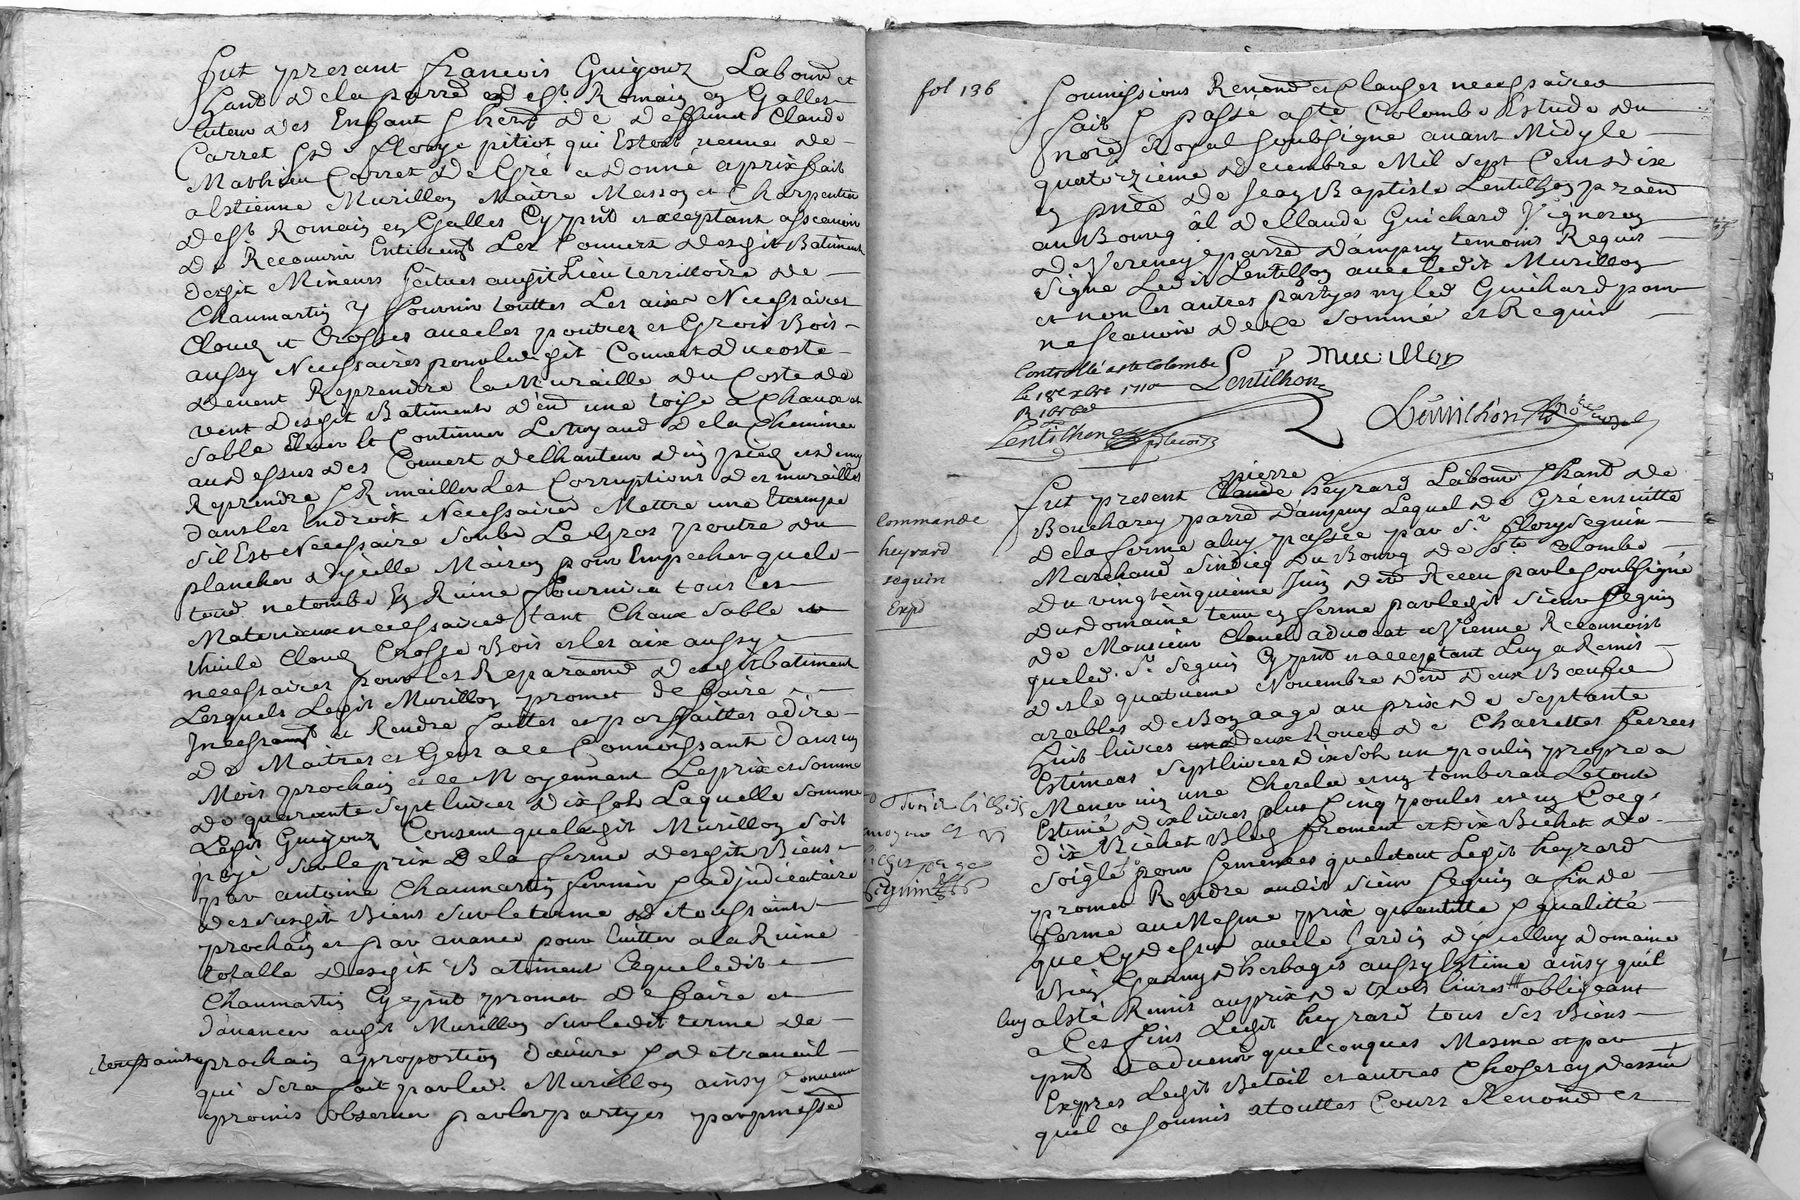 fut presant francois Guigouz Labour et
hant de la parre de st. Romain en Galles
tuteur des Enfant et herit de deffunct Claude
Carret et de floryе pitiot qui Estoit veuve de
Mathieu Carret de Gré a donné a prix fait
a Estienne Murillon Maitre Masson et Charpentier
de st Romain en Galles Cy pnt et acceptant ascavoir
de Recouvrir Entierent Les Couvert desdit Batiment
desdit Mineurs scitues audit Lieu terrilloire de
Chaumartin y fournir touttes Les aixes Necessaires
Cloux et Crosses avec les poutres et Gros Bois
aussy Necessaires pour ledit Couvert du costé
devent Reprendre la Muraille du Costé de
vent desdit Batiments d'en une toise a Chaux et
sable Elever et Continuer Le tuyaud de la Cheminee
au dessus des Couvert de lhauteur d'un pied et demy
Reprendre et Rimailler Les Corruptions des murailles
dans les Endroit Necessaires Mettre une Etampe
s'il Est Necessaire soubs Le Gros poutre du
plancher dycelle Maison pour Empecher que le
tout ne tombe En Ruine fournira tous les
Materiaux necessaires tant Chaux sable
thuile Cloux Crosse Bois et les aix aussy
necessaires pour les Reparaons desdits batiment
Lesquels Ledit Murillon promet de faire
Incessant et Rendre faittes et parfaittes a dire
de Maitres et Gens a ce Connoissant dans un
Mois prochain et ce Moyennant Le prix et somme
de quarante sept livres dix sols Laquelle somme
Ledit Guigouz Consent que ledit Murillon soit
payé sur le prix de la ferme desdit Biens
par antoine Chaumartin fermier et adjudicataire
desdit Biens sur le terme de toussaints
prochain et par avance pour Eviter a la Ruine
totalle desdit Batiment Ce que ledit
Chaumartin Cy pnt promet de faire et
d'avancer audit Murillon sur ledit terme de
toussaints prochain a proportion d'œuvre et de travail
qui sera fait par led. Murillon ainsy Convenu
promis observer par les partyes par promesses
fol 136
soumissions Renond et clauses necessaires
fait et passé a ste Colombe Estude du
notre Royal soubsigne avant Midy le
quatorzieme decembre Mil sept Cents dix
en pnce de Jean Baptiste Lentilhon praen
au Bourg de Claude Guichard Vigneron
de Vereney parre d'ampuy temoins Requis
signe Ledit Lentilhon avec ledit Murillon
et non les autres partyes ny led Guichard pour
ne scavoir de ce sommé et Requis
Murillon
Controllé a ste Colombe
le 18e xbre 1710
Lentilhon
Lentilhon
Lentilhon
Commande
heyrard
seguin
Exp
pierre
fut present Claude heyrard Labour et hant de
Boucharey parre dampuy Lequel de Gré ensuitte
de la ferme a luy passée par Sr flory seguin
Marchand sindicq du Bourg de Ste Colombe
du vingt cinquieme Juin dr Receu par le soubsigné
du domaine tenu en ferme par ledit sieur seguin
de Monsieur Clouet advocat a Vienne Reconnoist
que led. Sr Seguin Cy pnt et acceptant Luy a Remis
des le quatrieme Novembre dr deux Bœufs
arables de Bon aage au prix de septante
huit livres deux Roues de Charrettes ferrees
Estimeas sept livres dix sols un poulin propre a
Mener une Cherelee et un tombereau Le tout
Estimé dix livres plus Cinq poules et un Coeg
dix Bichet Bled froment et dix Bichet de
soigle pour semences que le tout Ledit heyrard
promet Rendre audit sieur seguin a fin de
ferme au Mesme prix quantitte et qualitté
que Cy dessus avec le Jardin dycelluy domaine
Bien Garny dherbages aussy Estimé ainsy quil
luy a Esté Remis au prix de trois livres obligeant
a Ces fins Ledit heyrard tous ses Biens
pnt et advenir quelconques Mesme et par
Expres Ledit Betail et autres Choses Cy dessus
quil a soumis a touttes Cours Renond et